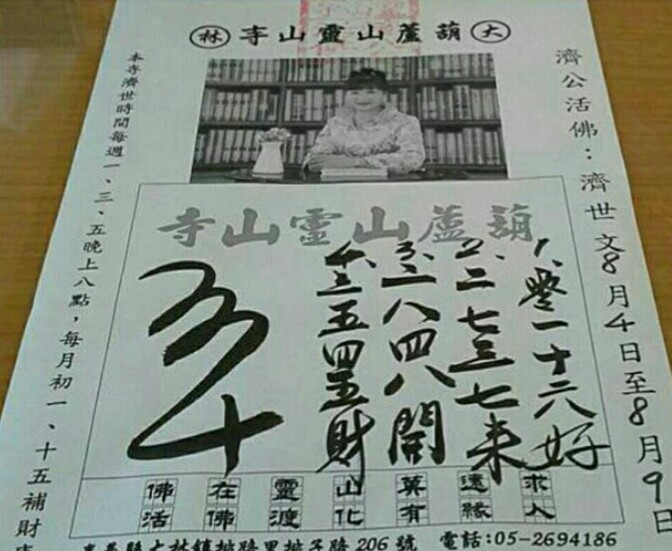 大 葫蘆山靈山寺 林
濟公活佛：濟世文8月4日至8月9日
葫蘆山靈山寺
1.零一十六好
2.二七三七来
3.一八四八開
4.三五四五財
佛在靈山莫遠求
活佛渡化有緣人
本寺濟世時間每週一、三、五晚上八點，每月初一、十五補財
大林鎮 路206號 電話:05-2694186